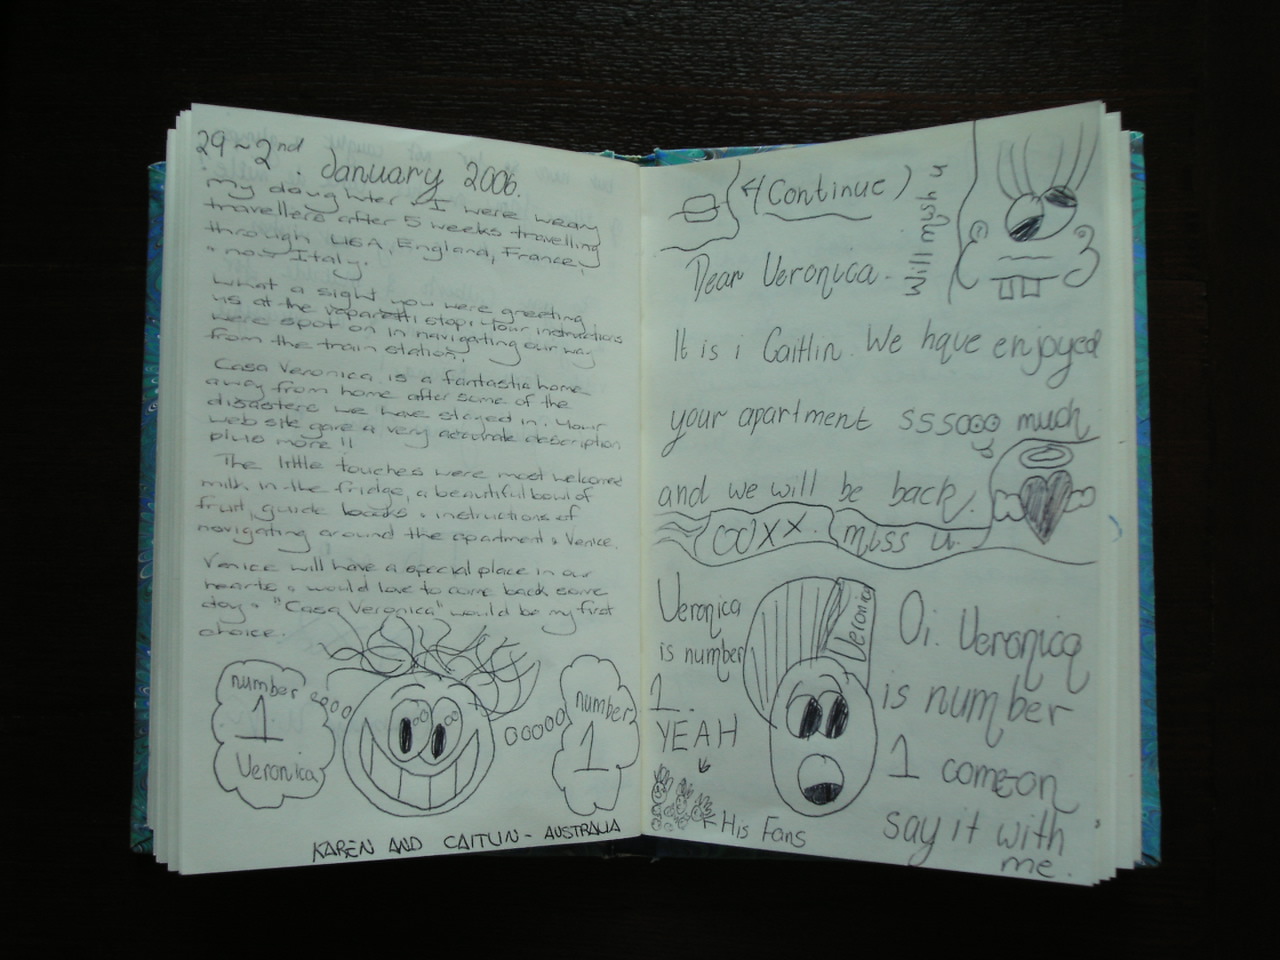 29 ~ 2nd January 2006.
My daughter & I were weary
travellers after 5 weeks travelling
through USA, England, France,
& now Italy.
What a sight you were greeting
us at the vaparetti stop. Your instructions
were spot on in navigating our way
from the train station.
Casa Veronica is a fantastic home
away from home after some of the
disasters we have stayed in. Your
web site gave a very accurate description
plus more !!
The little touches were most welcomed
milk in the fridge, a beautiful bowl of
fruit, guide books & instructions of
navigating around the apartment & Venice.
Venice will have a special place in our
hearts & would love to come back some
day & "Casa Veronica" would be my first
choice.
number
1
Veronica
number
1
KAREN AND CAITLIN - AUSTRALIA
(Continue)
Will mish u
Dear Veronica.
It is i Caitlin. We have enjoyed
your apartment sssooo much
and we will be back.
OOXX.
miss u.
Veronica
is number
1.
YEAH
His Fans
Veronica
Oi. Veronica
is number
1 come-on
say it with
me.